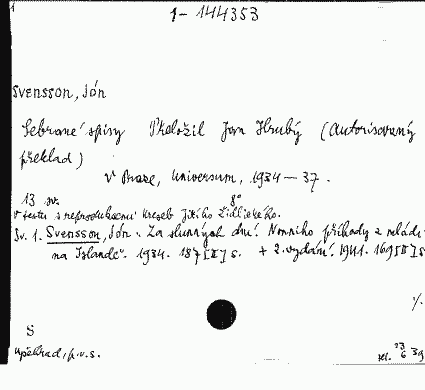 1
1-144353
Svensson, Jón
Sebrané spisy Přeložil Jan Hrubý (Autorisovaný
překlad)
V Praze, Universum, 1934-37.
13 sv. 8°
V textu s reprodukcemi kreseb Jiřího Židlického.
Sv. 1. Svensson, Jón. Za slunných dní. Nonniho příhody z mládí
na Islandě". 1934. 187 [II] s. + 2. vydání. 1941. 169 [II] s
%
S
6 39